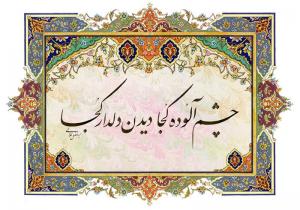 چشم آلوده کجا دیدن دلدار کجا